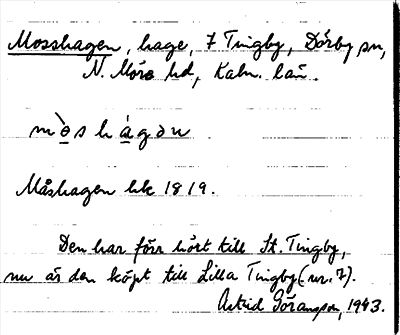 Mosshagen, hage, 7 Tingby, Dörby sn,
N. Möre hd, Kalm. län.
mò̱s há̱gən
Måshagen hk 1819.
Den har förr hört till St. Tingby,
nu är den köpt till Lilla Tingby (nr. 7).
Astrid Göransson, 1943.